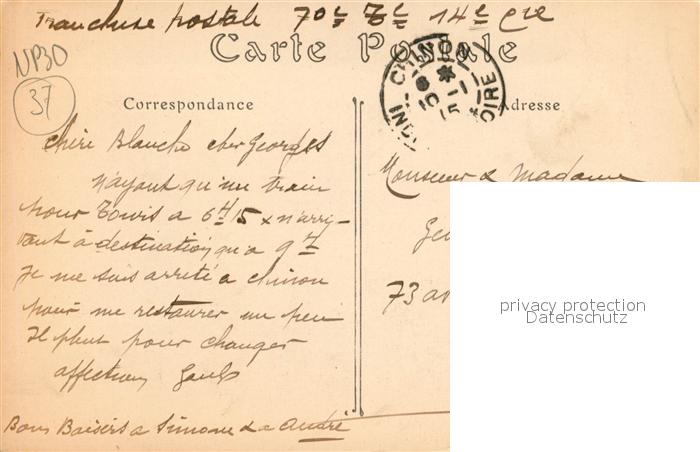 Franchise postale 70e Tal 14e Cie
Carte Postale
NP30
37
Correspondance
Adresse
CHINON
LOIRE
Chère Blanche cher Georges
N'ayant qu'un train
pour Tours a 6H15 & n'arri-
vant à destination qu'a 9H
Je me suis arrêté a Chinon
pour me restaurer un peu
Il pleut pour changer
affection
Bons Baisers a Simone & a André
Monsieur & Madame
73 av
privacy protection
Datenschutz